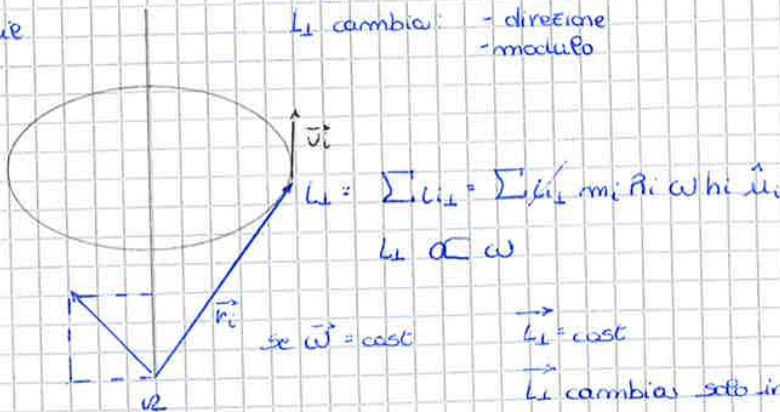 L⊥ cambia: - direzione
- modulo
v̄i
L⊥ = ∑Li⊥ = ∑ mi Ri ω hi ûi
L⊥ ∝ ω
r⃗i
se ω⃗ = cost
L⃗⊥ = cost
L⃗⊥ cambia solo in
Ω